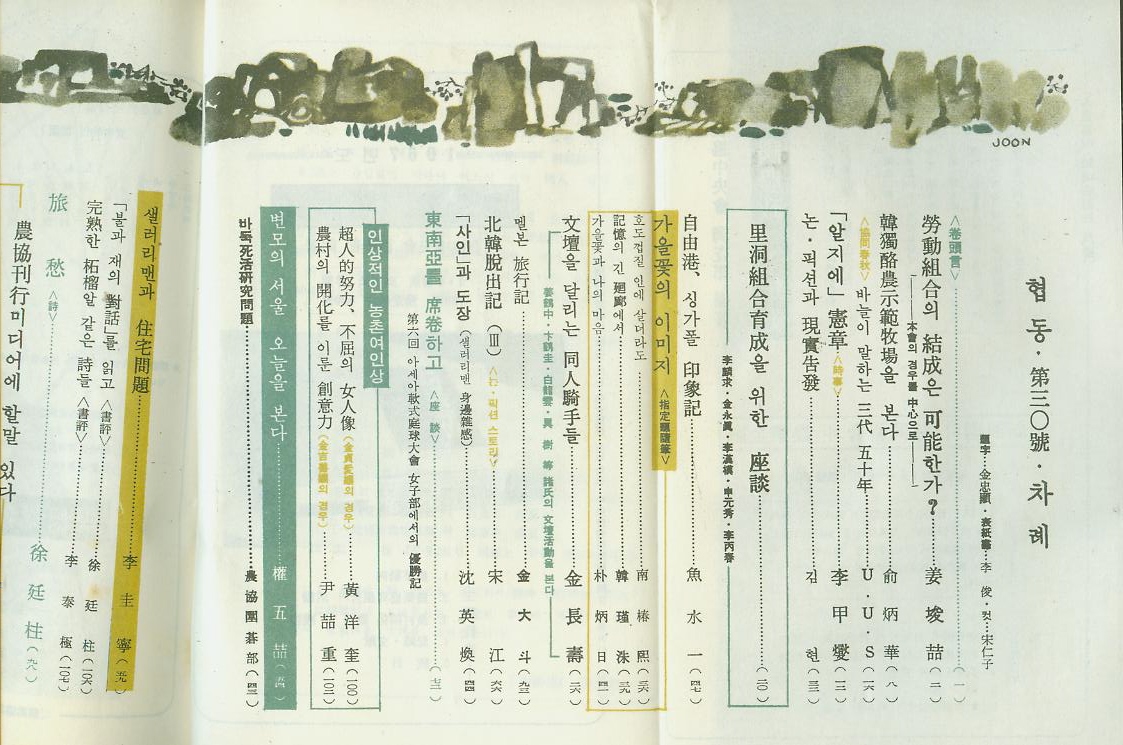 협동·第三〇號·차례
題字…金忠顯·表紙畵…李 俊·컷…宋仁子
<卷頭言>……(一)
勞動組合의 結成은 可能한가?……姜埈喆(二)
──本會의 경우를 中心으로──
韓獨酪農示範牧場을 본다……俞炳華(八)
<協同春秋> 바늘이 말하는 三代 五十年……U·U·S(一六)
「알지에」憲章<時事>……李甲燮(一二)
논·픽션과 現實告發……김 현(三三)
里洞組合育成을 위한 座談……(二〇)
李麟求·金永眞·李漢模·申元秀·李丙春
自由港、싱가폴 印象記……魚水一(四七)
가을꽃의 이미지 <指定題隨筆>
호도껍질 안에 살더라도……南椿熙(三六)
記憶의 긴 廻廊에서……韓瑾洙(三九)
가을꽃과 나의 마음……朴炳日(四一)
文壇을 달리는 同人騎手들……金長壽(二六)
等 諸氏의 文壇活動을 본다
멜본 旅行記……金大斗(九三)
北韓脫出記 (Ⅲ) <논·픽션 스토리>……宋江(六六)
「사인」과 도장 (샐러리맨 身邊雜感)……沈英煥(四四)
東南亞를 席卷하고 <座談>……(七二)
第六回 아세아軟式庭球大會 女子部에서의 優勝記
인상적인 농촌여인상
超人的努力、不屈의 女人像 (金貞愛孃의 경우)……黃洋奎(一〇〇)
農村의 開化를 이룬 創意力 (金吉善孃의 경우)……尹喆重(一〇二)
변모의 서울 오늘을 본다……權五喆(五四)
바둑死活硏究問題……農協圍碁部(四三)
샐러리맨과 住宅問題……李圭寧(五九)
「불과 재의 對話」를 읽고 <書評>……徐廷柱(一〇六)
完熟한 柘榴알 같은 詩들 <書評>……李泰極(一〇七)
旅愁 <詩>……徐廷柱(六八)
農協刊行미디어에 할말 있다
JOON